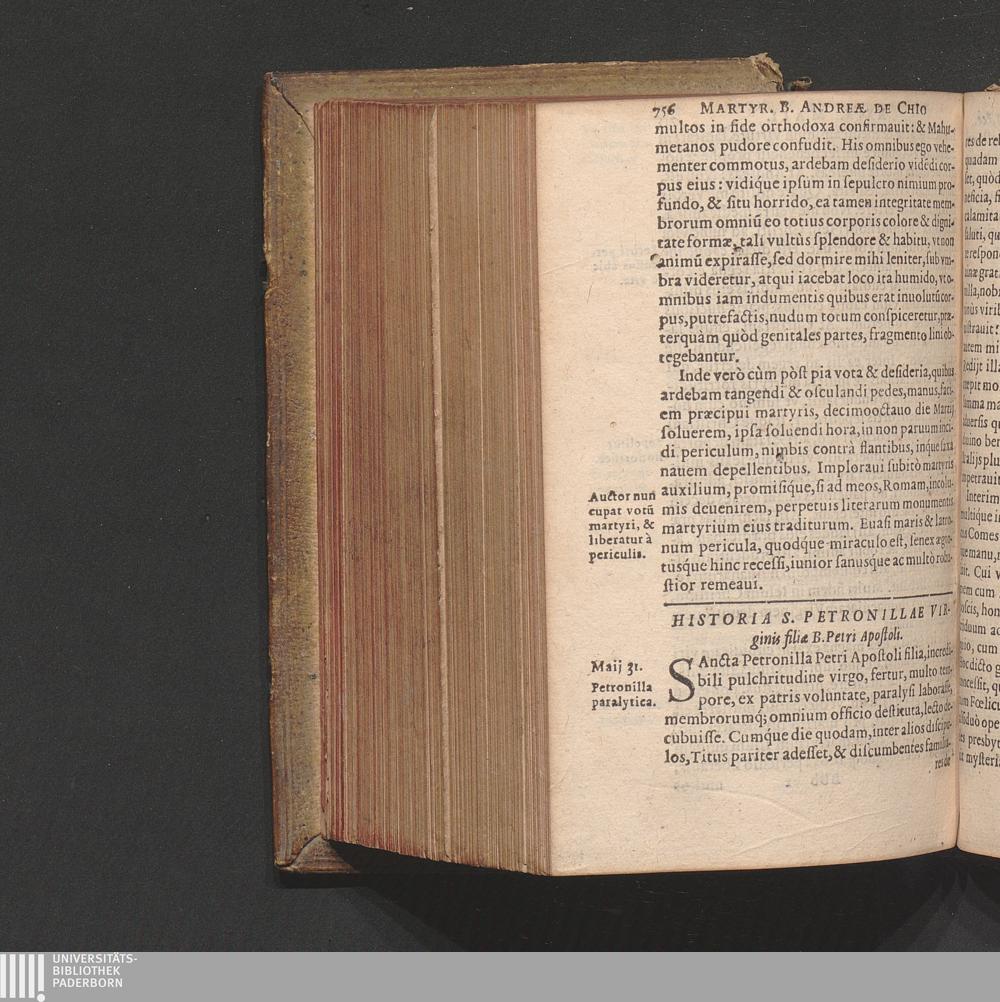 756 MARTYR. B. ANDREÆ DE CHIO
multos in fide orthodoxa confirmauit: & Mahu-
metanos pudore confudit. His omnibus ego vehe-
menter commotus, ardebam desiderio vidēdi cor-
pus eius: vidíque ipsum in sepulcro nimium pro-
fundo, & situ horrido, ea tamen integritate mem-
brorum omniū eo totius corporis colore & digni-
tate formæ, tali vultùs splendore & habitu, vt non
animū expirasse, sed dormire mihi leniter, sub vm-
bra videretur, atqui iacebat loco ita humido, vt o-
mnibus iam indumentis quibus erat inuolutū cor-
pus, putrefactis, nudum totum conspiceretur, præ-
terquàm quòd genitales partes, fragmento lini ob-
tegebantur.
Inde verò cùm pòst pia vota & desideria, quibus
ardebam tangendi & osculandi pedes, manus, faci-
em præcipui martyris, decimooctauo die Martij
soluerem, ipsa soluendi hora, in non paruum inci-
di periculum, nimbis contrà flantibus, inque saxa
nauem depellentibus. Imploraui subitò martyris
auxilium, promisique, si ad meos, Romam, incolu-
mis deuenirem, perpetuis literarum monumentis
martyrium eius traditurum. Euasi maris & latro-
num pericula, quodque miraculo est, senex ægro-
túsque hinc recessi, iunior sanusque ac multò robu-
stior remeaui.
Auctor nun
cupat votū
martyri, &
liberatur à
periculis.
HISTORIA S. PETRONILLAE VIR-
ginis filiæ B. Petri Apostoli.
Maij 31.
Petronilla
paralytica.
SAncta Petronilla Petri Apostoli filia, incredi-
bili pulchritudine virgo, fertur, multo tem-
pore, ex patris voluntate, paralysi laborasse,
membrorumq; omnium officio destituta, lecto de-
cubuisse. Cumque die quodam, inter alios discipu-
los, Titus pariter adesset, & discumbentes familia-
res de
quadam
calamita
illa, nob
Interim
Comes
manu,
Cui v
cum
hon
cum
dicto
presbyt
UNIVERSITÄTS-
BIBLIOTHEK
PADERBORN